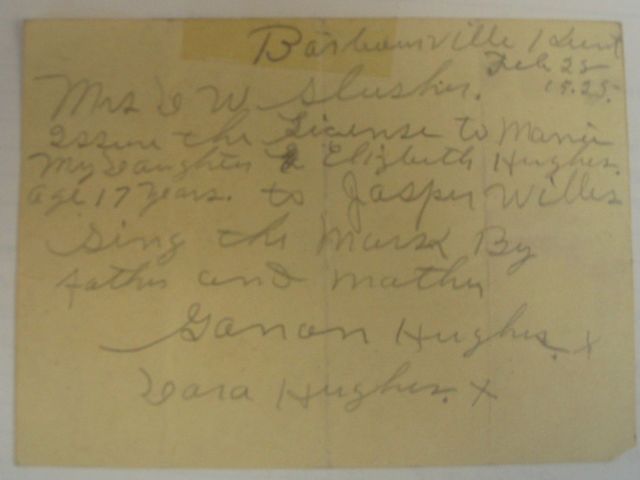 Barbourville Kent
Feb 25
1925.
Mrs D W Slusher.
issure the License to Marrie
My Daughter E Elizbeth Hughes.
age 17 years. to Jasper Willis
Sing the Mark By
father and mother
Ganon Hughes. x
Dara Hughes. x